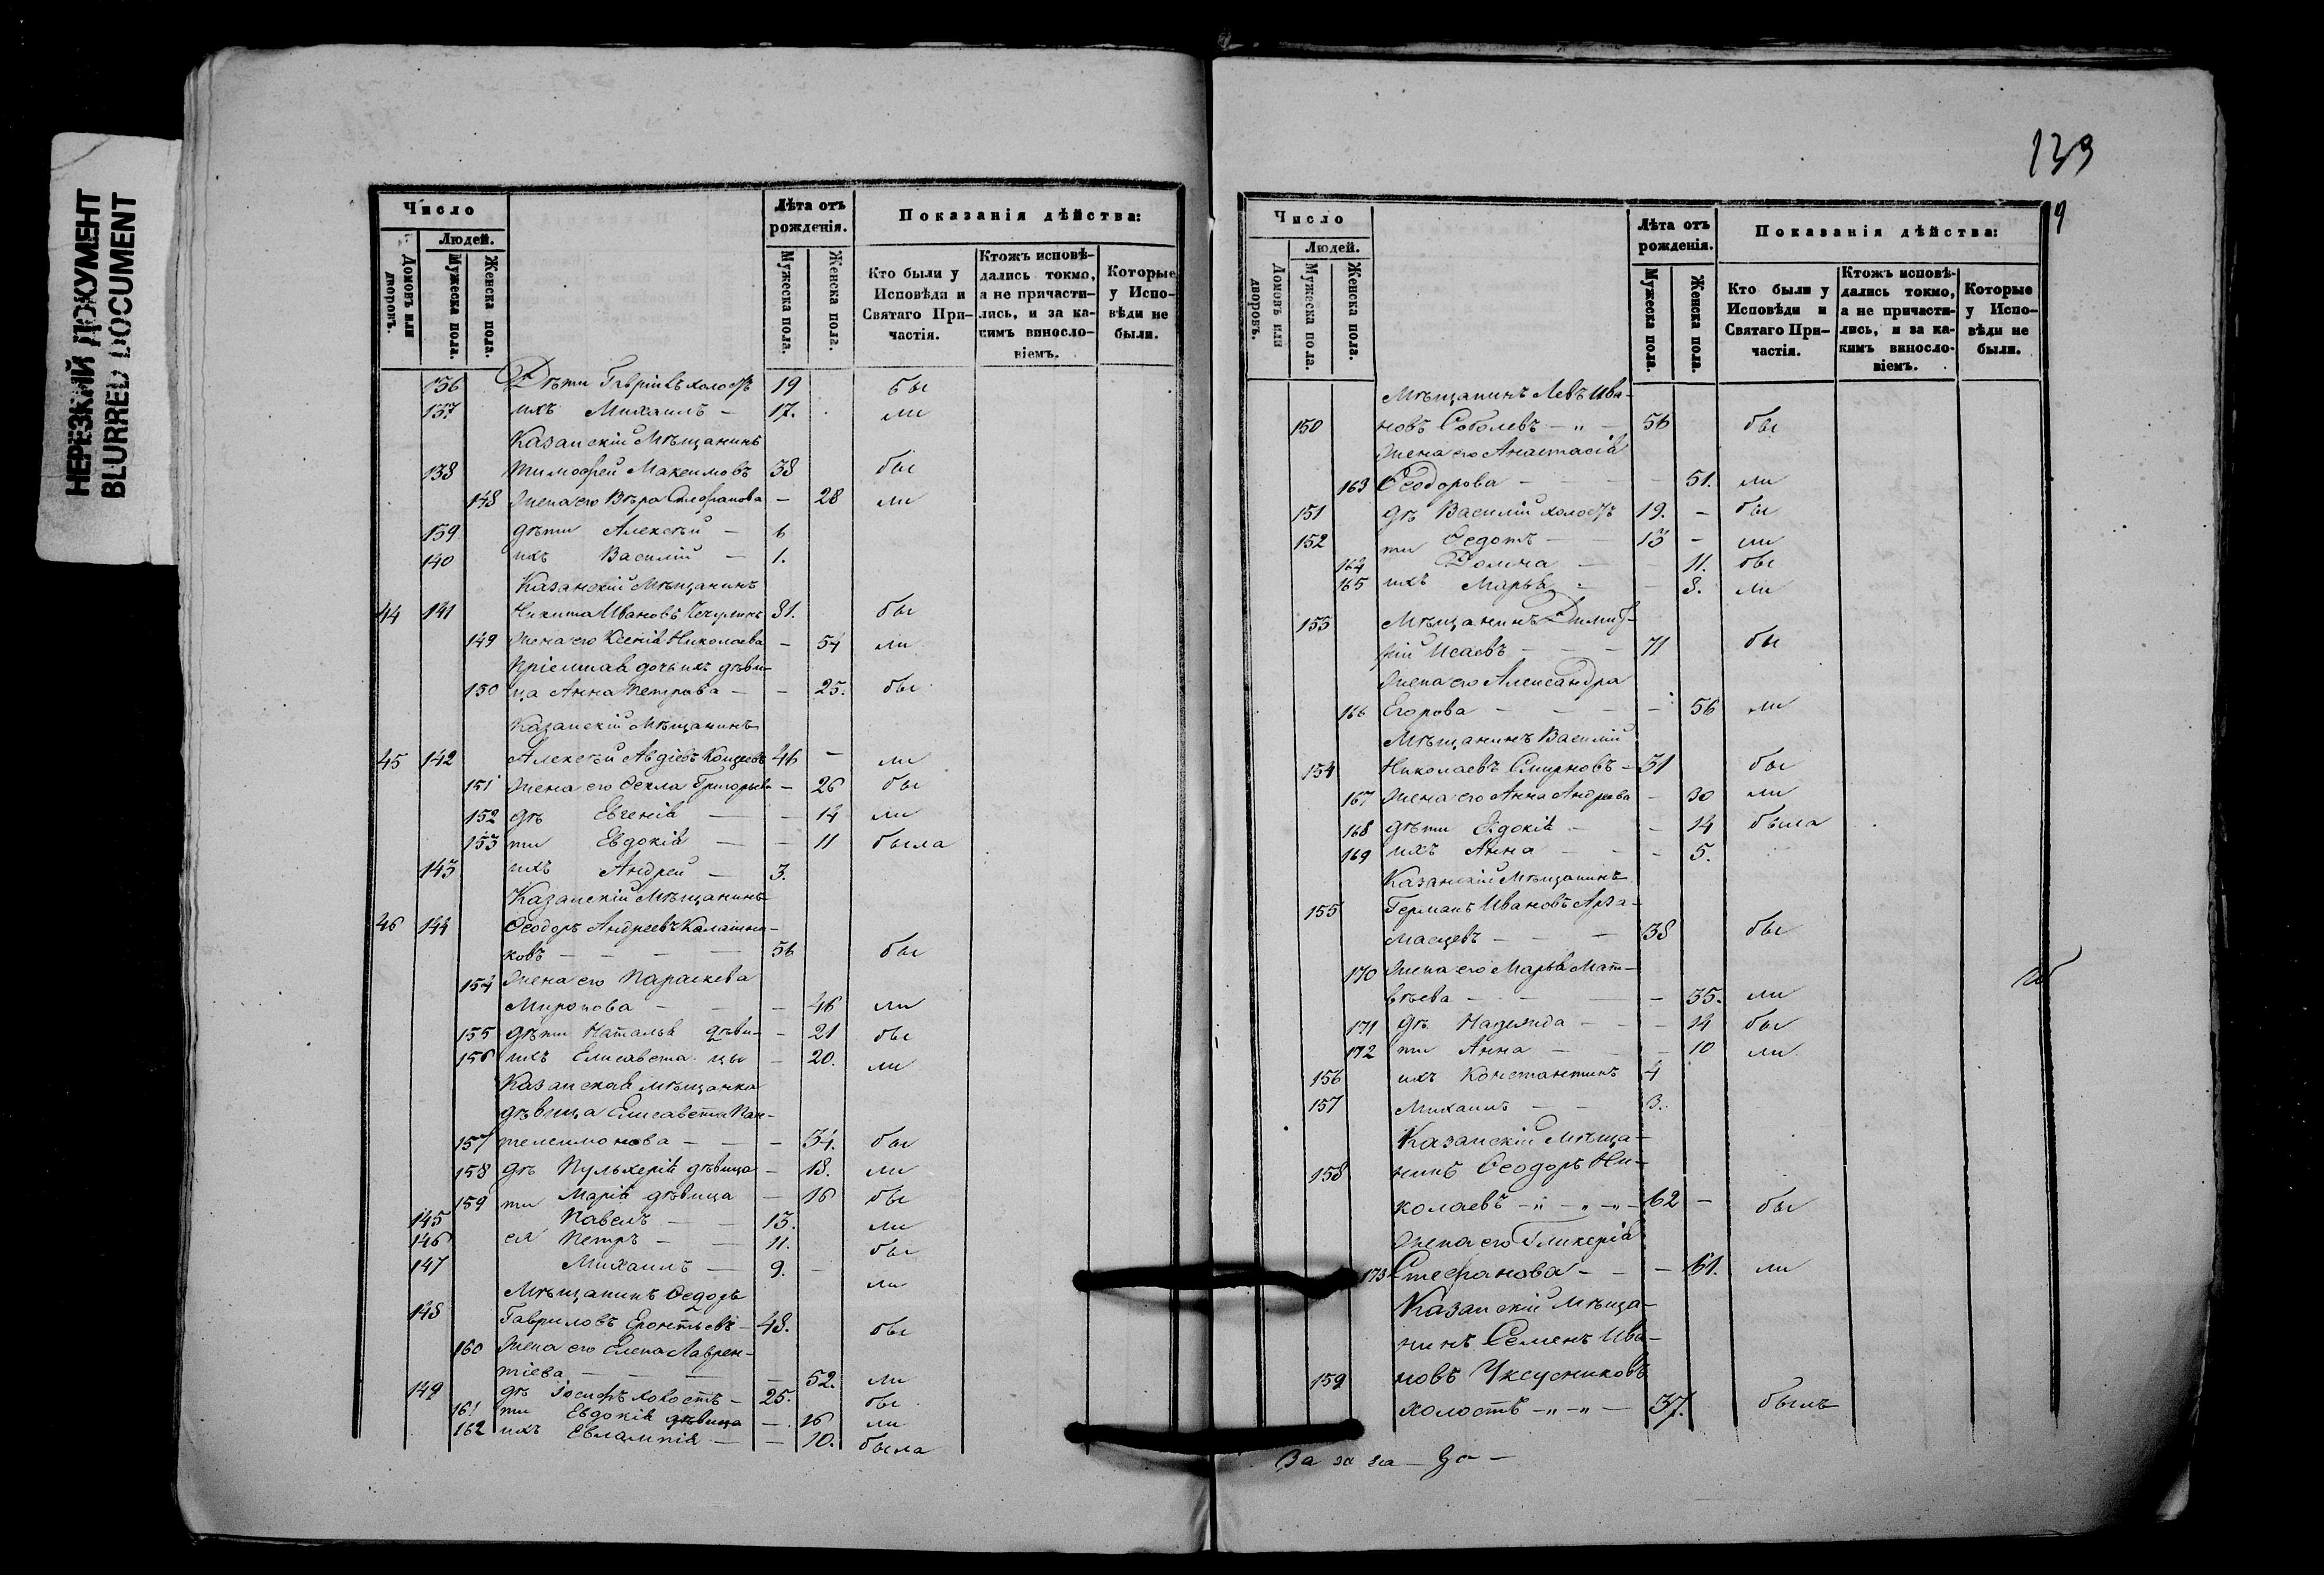 НЕРЕЗКИЙ ДОКУМЕНТ
BLURRED DOCUMENT
Число
Людей.
Домовъ или дворовъ.
Мужеска пола.
Женска пола.
Лѣта отъ рожденія.
Мужеска пола.
Женска пола.
Показанія дѣйства:
Кто были у Исповѣди и Святаго При-частія.
Ктожъ исповѣ-дались токмо, а не причасти-лись, и за ка-кимъ виносло-віемъ.
Которые у Испо-вѣди не были.
136 Дѣти Гавріилъ холостъ 19 бы
137 ихъ Михаилъ — 17. ли
Казанскій Мѣщанинъ
138 Тимофей Максимовъ 38 бы
148 Жена его Вѣра — 28 ли
139 дѣти Алексѣй — 6
140 ихъ Василій — 1.
Казанскій Мѣщанинъ
44 141 Никита Ивановъ 81. бы
149 Жена его Ксенія Николаева — 54 ли
Пріемная дочь ихъ дѣви-
150 ца Анна Петрова — — 25. бы
Казанскій Мѣщанинъ
45 142 Алексѣй Авдіевъ 46 — ли
151 Жена его Ѳекла Григорьева — 26 бы
152 дѣ Евгенія — — 14 ли
153 ти Евдокія — — 11 была
143 ихъ Андрей — 3.
Казанскій Мѣщанинъ
46 144 Ѳеодоръ Андреевъ Калашни-
ковъ — — — — 56 бы
154 Жена его Параскева
Миронова — — — 46 ли
155 дѣти Наталья дѣви- — 21 бы
156 ихъ Елисавета цы — 20. ли
Казанская мѣщанка
дѣвица Елисавета Пан-
157 телеимонова — — — 34. бы
158 дѣ Пульхерія дѣвица — 18. ли
159 ти Марія дѣвица — 16 бы
145 Павелъ — — 13. ли
146 ея Петръ — — 11. бы
147 Михаилъ — 9. — ли
Мѣщанинъ Ѳедоръ
148 Гавриловъ — 48. бы
160 Жена его Елена Лаврен-
тіева — — — — 52. ли
149 дѣ Іосифъ холостъ — 25. бы
161 ти Евдокія дѣвица — 16 ли
162 ихъ Евлампія — — 10. была
139
9
Число
Людей.
Домовъ или дворовъ.
Мужеска пола.
Женска пола.
Лѣта отъ рожденія.
Мужеска пола.
Женска пола.
Показанія дѣйства:
Кто были у Исповѣди и Святаго При-частія.
Ктожъ исповѣ-дались токмо, а не причасти-лись, и за ка-кимъ виносло-віемъ.
Которые у Испо-вѣди не были.
Мѣщанинъ Левъ Ива-
150 новъ Соболевъ — „ — 56 бы
Жена его Анастасія
163 Ѳеодорова — — — 51. ли
151 дѣ Василій холостъ 19. — бы
152 ти Ѳедотъ — — 13 — ли
164 Домна — — 11. бы
165 ихъ Марья — — 8. ли
153 Мѣщанинъ Димит-
рій Исаевъ — — — 71 бы
Жена его Александра
166 Егорова — — — — 56 ли
Мѣщанинъ Василій
154 Николаевъ Смирновъ — 31 бы
167 Жена его Анна Андреева — 30 ли
168 дѣти Евдокія — — 14 была
169 ихъ Анна — — — 5.
Казанскій Мѣщанинъ
155 Германъ Ивановъ Арза-
масцевъ — — — 38 бы
170 Жена его Марья Мат-
вѣева — — — — 35. ли
171 дѣ Надежда — — — 14 бы
172 ти Анна — — — 10 ли
156 ихъ Константинъ 4
157 Михаилъ — — 3.
Казанскій мѣща-
158 нинъ Ѳеодоръ Ни-
колаевъ — „ — „ — „ — 62 — бы
Жена его Гликерія
173 Стефанова — — — 61. ли
Казанскій мѣща-
нинъ Семенъ Ива-
159 новъ Уксусниковъ
холостъ — „ — „ — 37. былъ